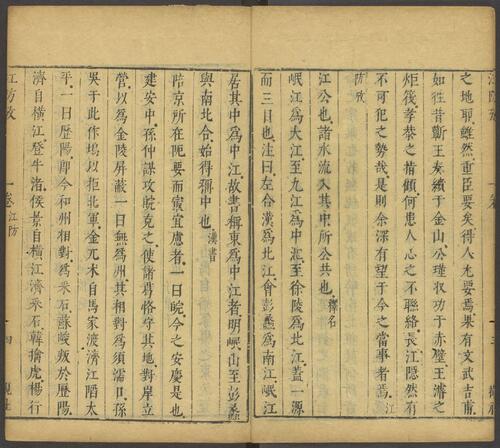 之地耶雖然重臣要矣得人尤要焉果有文武吉甫
如往昔蘄王奏績于金山公瑾收功于赤壁王濬之
炬筏孝恭之揹傾何患人心之不聯絡長江隱然有
不可犯之勢哉是則余深有望于今之當事者焉 江
防攷
江公也諸水流入其中所公共也 釋名
岷江爲大江至九江爲中江至徐陵爲北江葢一源
而三目也注曰左合漢爲北江會彭蠡爲南江岷江
居其中爲中江故書稱東爲中江者明岷山至彭蠡
與南北合始得稱中也 漢書
陪京所在阨要而最宜慮者一曰皖今之安慶是也
建安中孫仲謀攻皖克之使諸葛恪守其地對岸立
營以爲金陵屏蔽一曰無爲州其相對爲須濡口孫
吳于此作塢以拒北軍金兀朮自馬家渡濟江陷太
平一曰歷陽即今和州相對爲采石蘇峻叛於歷陽
濟自橫江登牛渚侯景自橫江濟采石韓擒虎楊行
江防攷 一卷 江防 十四